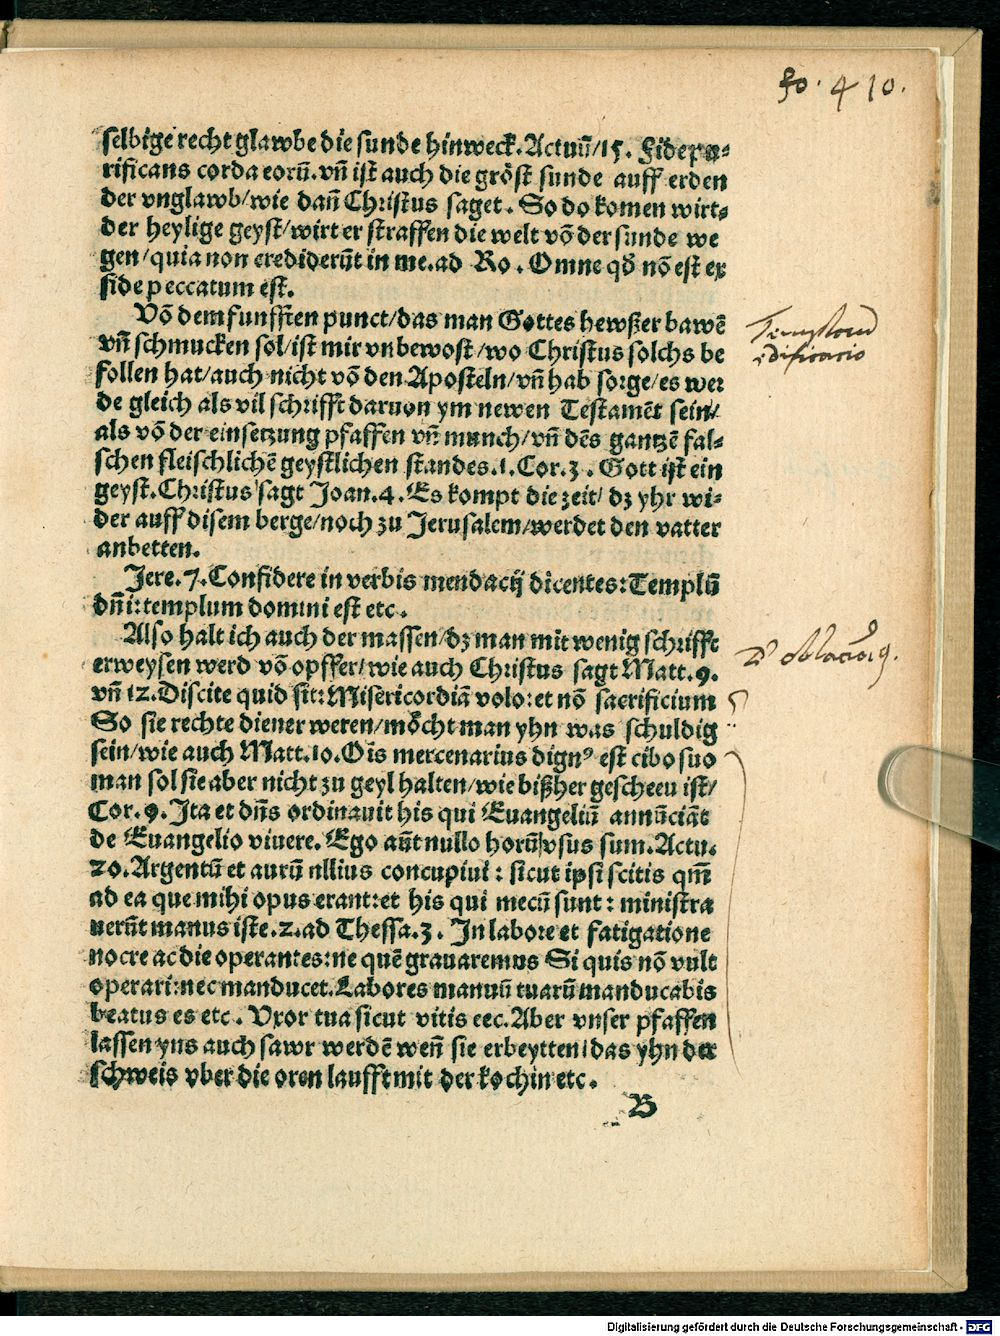 fo. 410.
selbige recht glawbe die sunde hinweck. Actuū/15. Fide pu⸗
rificans corda eorū. vn̄ ist auch die gröst sunde auff erden
der vnglawb/wie dan̄ Christus saget. So do komen wirt⸗
der heylige geyst/wirt er straffen die welt vō der sunde we
gen/quia non crediderūt in me. ad Ro. Omne qđ nō est ex
fide peccatum est.
Vō dem funfften punct/das man Gottes hewßer bawē
vn̄ schmucken sol/ist mir vnbewost/wo Christus solchs be
follen hat/auch nicht vō den Aposteln/vn̄ hab sorge/es wer
de gleich als vil schrifft daruon ym newen Testamēt sein/
als vō der einsetzung pfaffen vn̄ munch/vn̄ dēs gantzē fal⸗
schen fleischlichē geystlichen standes. 1. Cor. 3. Gott ist ein
geyst. Christus sagt Joan. 4. Es kompt die zeit/ dz yhr wi⸗
der auff disem berge/noch zu Jerusalem/werdet den vatter
anbetten.
Templorum
edificacio
Jere. 7. Confidere in verbis mendacij dicentes: Templū
dn̄i: templum domini est etc.
Also halt ich auch der massen/dz man mit wenig schrifft
erweysen werd vō opffer/wie auch Christus sagt Matt. 9.
vn̄ 12. Discite quid sit: Misericordiā volo: et nō sacrificium
So sie rechte diener weren/möcht man yhn was schuldig
sein/wie auch Matt. 10. Oīs mercenarius dignꝰ est cibo suo
man sol sie aber nicht zu geyl halten/wie bißher gescheeu ist/
Cor. 9. Ita et dn̄s ordinauit his qui Euangeliū annūciāt
de Euangelio viuere. Ego aūt nullo horū vsus sum. Actu.
20. Argentū et aurū nllius concupiui: sicut ipsi scitis qm̄
ad ea que mihi opus erant: et his qui mecū sunt: ministra
uerūt manus iste. 2. ad Thessa. 3. In labore et fatigatione
nocte ac die operantes: ne quē grauaremus Si quis nō vult
operari: nec manducet. Labores manuū tuarū manducabis
beatus es etc. Vxor tua sicut vitis eec. Aber vnser pfaffen
lassen yns auch sawr werdē wen̄ sie erbeytten/das yhn der
schweis vber die oren laufft mit der kochin etc.
B
Digitalisierung gefördert durch die Deutsche Forschungsgemeinschaft - DFG